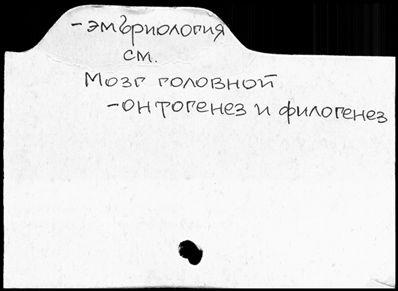 -эмбриология
см.
Мозг головной
-онтогенез и филогенез